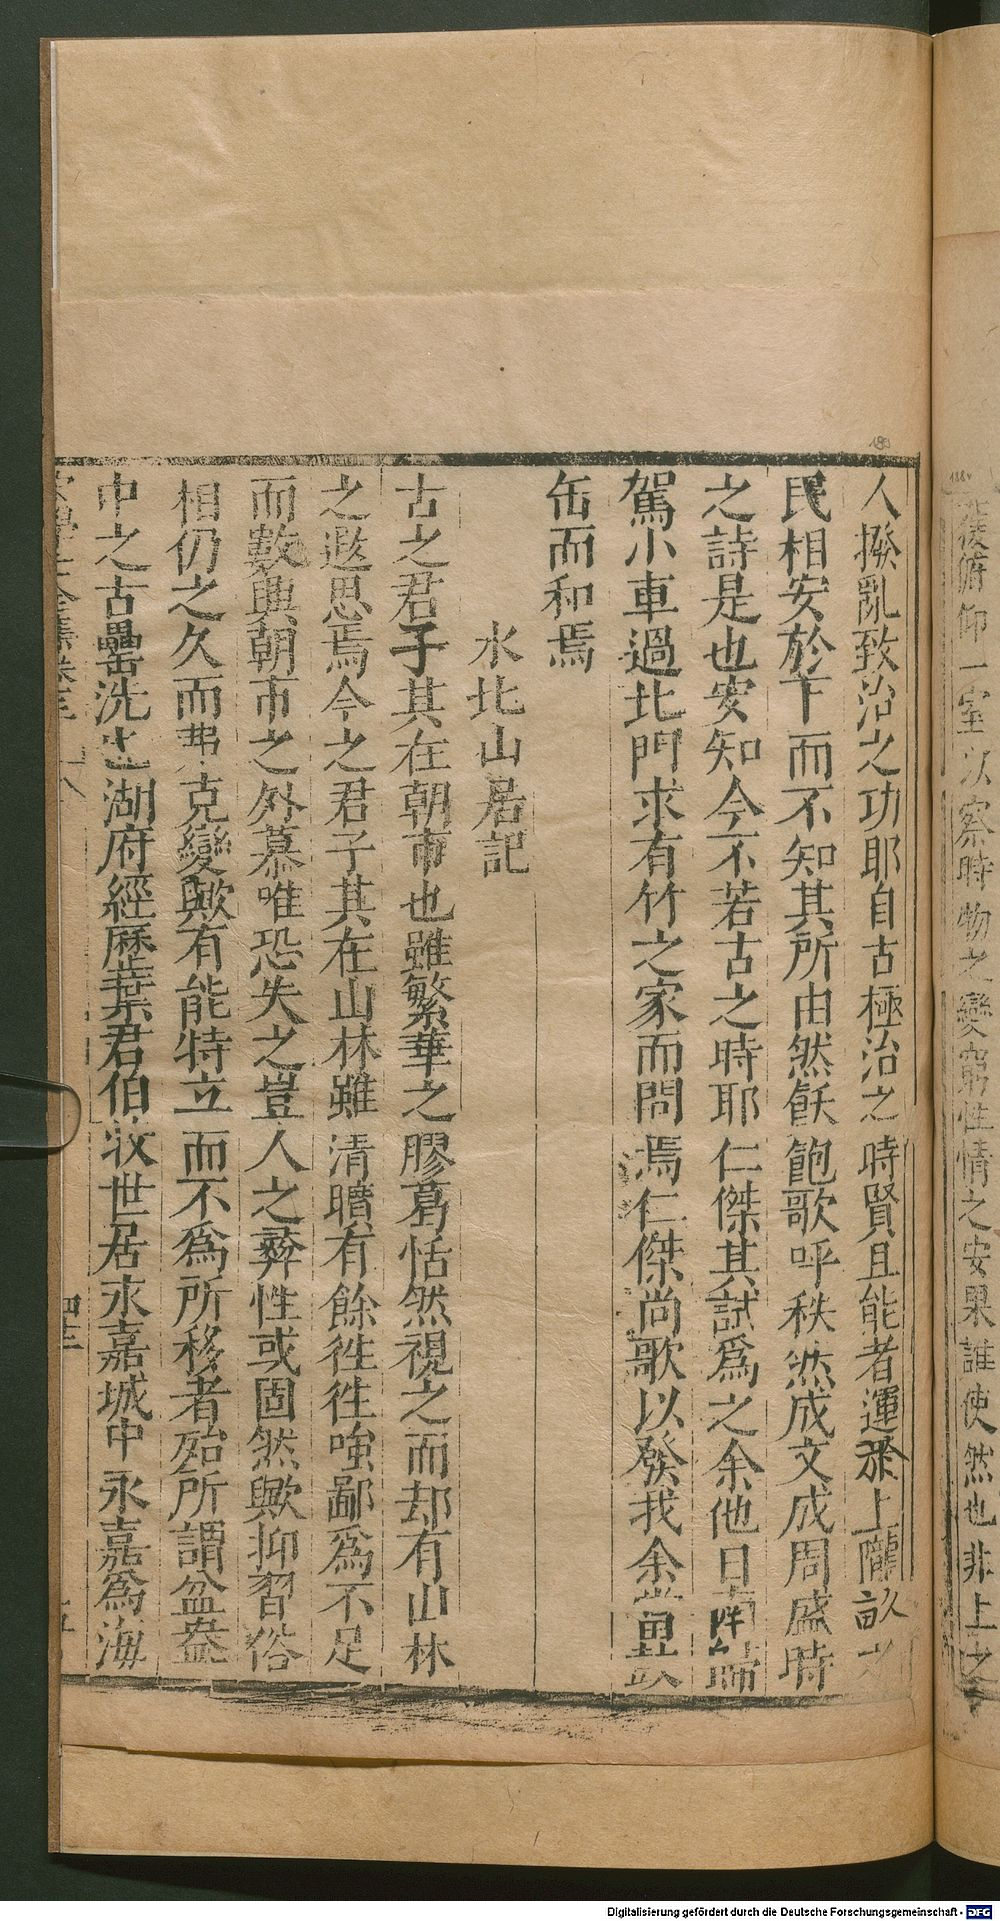 後俯仰一室以察時物之變窮性情之安果誰使然也非上之
人撥亂致治之功耶自古極治之時賢且能者運於上隴畝之
民相安於下而不知其所由然飫飽歌呼秩然成文成周盛時
之詩是也安知今不若古之時耶仁傑其試爲之余他日南歸
駕小車過北門求有竹之家而問焉仁傑尚歌以發我余當
缶而和焉
水北山居記
古之君子其在朝市也雖繁華之膠葛恬然視之而却有山林
之遐思焉今之君子其在山林雖清曠有餘徃徃嗤鄙爲不足
而數興朝市之外慕唯恐失之豈人之彜性或固然歟抑習俗
相仍之久而弗克變歟有能特立而不爲所移者殆所謂盆盎
中之古罍洗也湖府經歷葉君伯㳊世居永嘉城中永嘉爲海
Digitalisierung gefördert durch die Deutsche Forschungsgemeinschaft - DFG